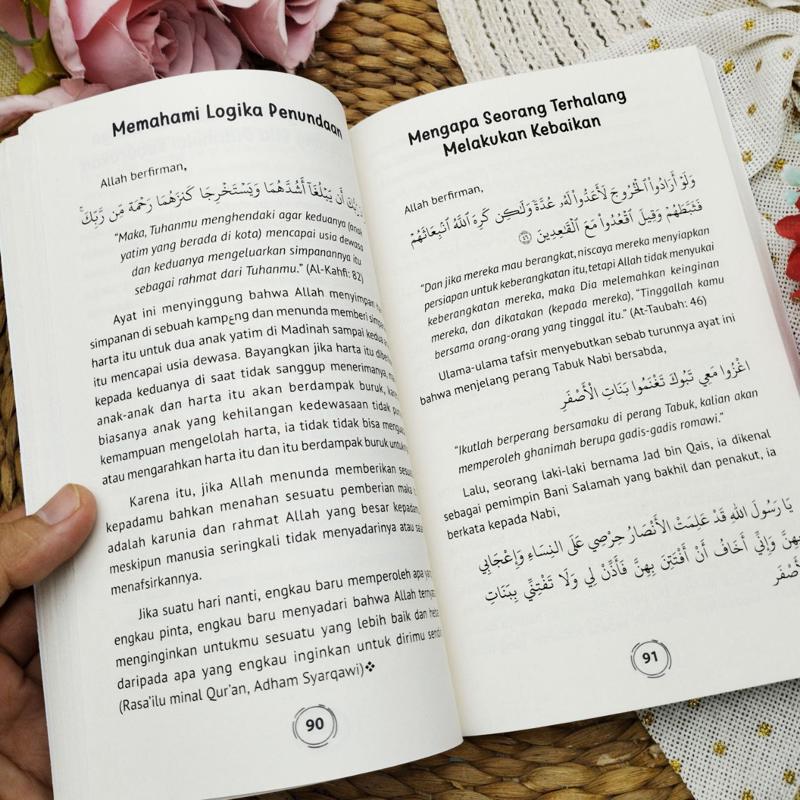 Memahami Logika Penundaan
Allah berfirman,
أَن يَبْلُغَآ أَشُدَّهُمَا وَيَسْتَخْرِجَا كَنزَهُمَا رَحْمَةً مِّن رَّبِّكَ
"Maka, Tuhanmu menghendaki agar keduanya (anak
yatim yang berada di kota) mencapai usia dewasa
dan keduanya mengeluarkan simpanannya itu
sebagai rahmat dari Tuhanmu." (Al-Kahfi: 82)
Ayat ini menyinggung bahwa Allah menyimpan
simpanan di sebuah kampeng dan menunda memberi
harta itu untuk dua anak yatim di Madinah sampai
itu mencapai usia dewasa. Bayangkan jika harta itu
kepada keduanya di saat tidak sanggup menerimanya,
anak-anak dan harta itu akan berdampak buruk,
biasanya anak yang kehilangan kedewasaan tidak
kemampuan mengelolah harta, ia tidak tidak bisa
atau mengarahkan harta itu dan itu berdampak buruk
Karena itu, jika Allah menunda memberikan
kepadamu bahkan menahan sesuatu pemberian maka
adalah karunia dan rahmat Allah yang besar
meskipun manusia seringkali tidak menyadarinya atau
menafsirkannya.
Jika suatu hari nanti, engkau baru memperoleh apa
engkau pinta, engkau baru menyadari bahwa Allah
menginginkan untukmu sesuatu yang lebih baik dan
daripada apa yang engkau inginkan untuk dirimu
(Rasa'ilu minal Qur'an, Adham Syarqawi)❖
90
Mengapa Seorang Terhalang
Melakukan Kebaikan
Allah berfirman,
وَلَوْ أَرَادُوا۟ ٱلْخُرُوجَ لَأَعَدُّوا۟ لَهُۥ عُدَّةً وَلَٰكِن كَرِهَ ٱللَّهُ ٱنۢبِعَاثَهُمْ
فَثَبَّطَهُمْ وَقِيلَ ٱقْعُدُوا۟ مَعَ ٱلْقَٰعِدِينَ ٤٦
"Dan jika mereka mau berangkat, niscaya mereka menyiapkan
persiapan untuk keberangkatan itu, tetapi Allah tidak menyukai
keberangkatan mereka, maka Dia melemahkan keinginan
mereka, dan dikatakan (kepada mereka), "Tinggallah kamu
bersama orang-orang yang tinggal itu." (At-Taubah: 46)
Ulama-ulama tafsir menyebutkan sebab turunnya ayat ini
bahwa menjelang perang Tabuk Nabi bersabda,
اغْزُوا مَعِي تَبُوكَ تَغْنَمُوا بَنَاتِ الْأَصْفَرِ
"Ikutlah berperang bersamaku di perang Tabuk, kalian akan
memperoleh ghanimah berupa gadis-gadis romawi."
Lalu, seorang laki-laki bernama Jad bin Qais, ia dikenal
sebagai pemimpin Bani Salamah yang bakhil dan penakut, ia
berkata kepada Nabi,
يَا رَسُولَ اللهِ قَدْ عَلِمَتْ الْأَنْصَارُ حِرْصِي عَلَى النِّسَاءِ وَإِعْجَابِي
بِهِنَّ وَإِنِّي أَخَافُ أَنْ أَفْتَتِنَ بِهِنَّ فَأْذَنْ لِي وَلَا تَفْتِنِّي بِبَنَاتِ
91